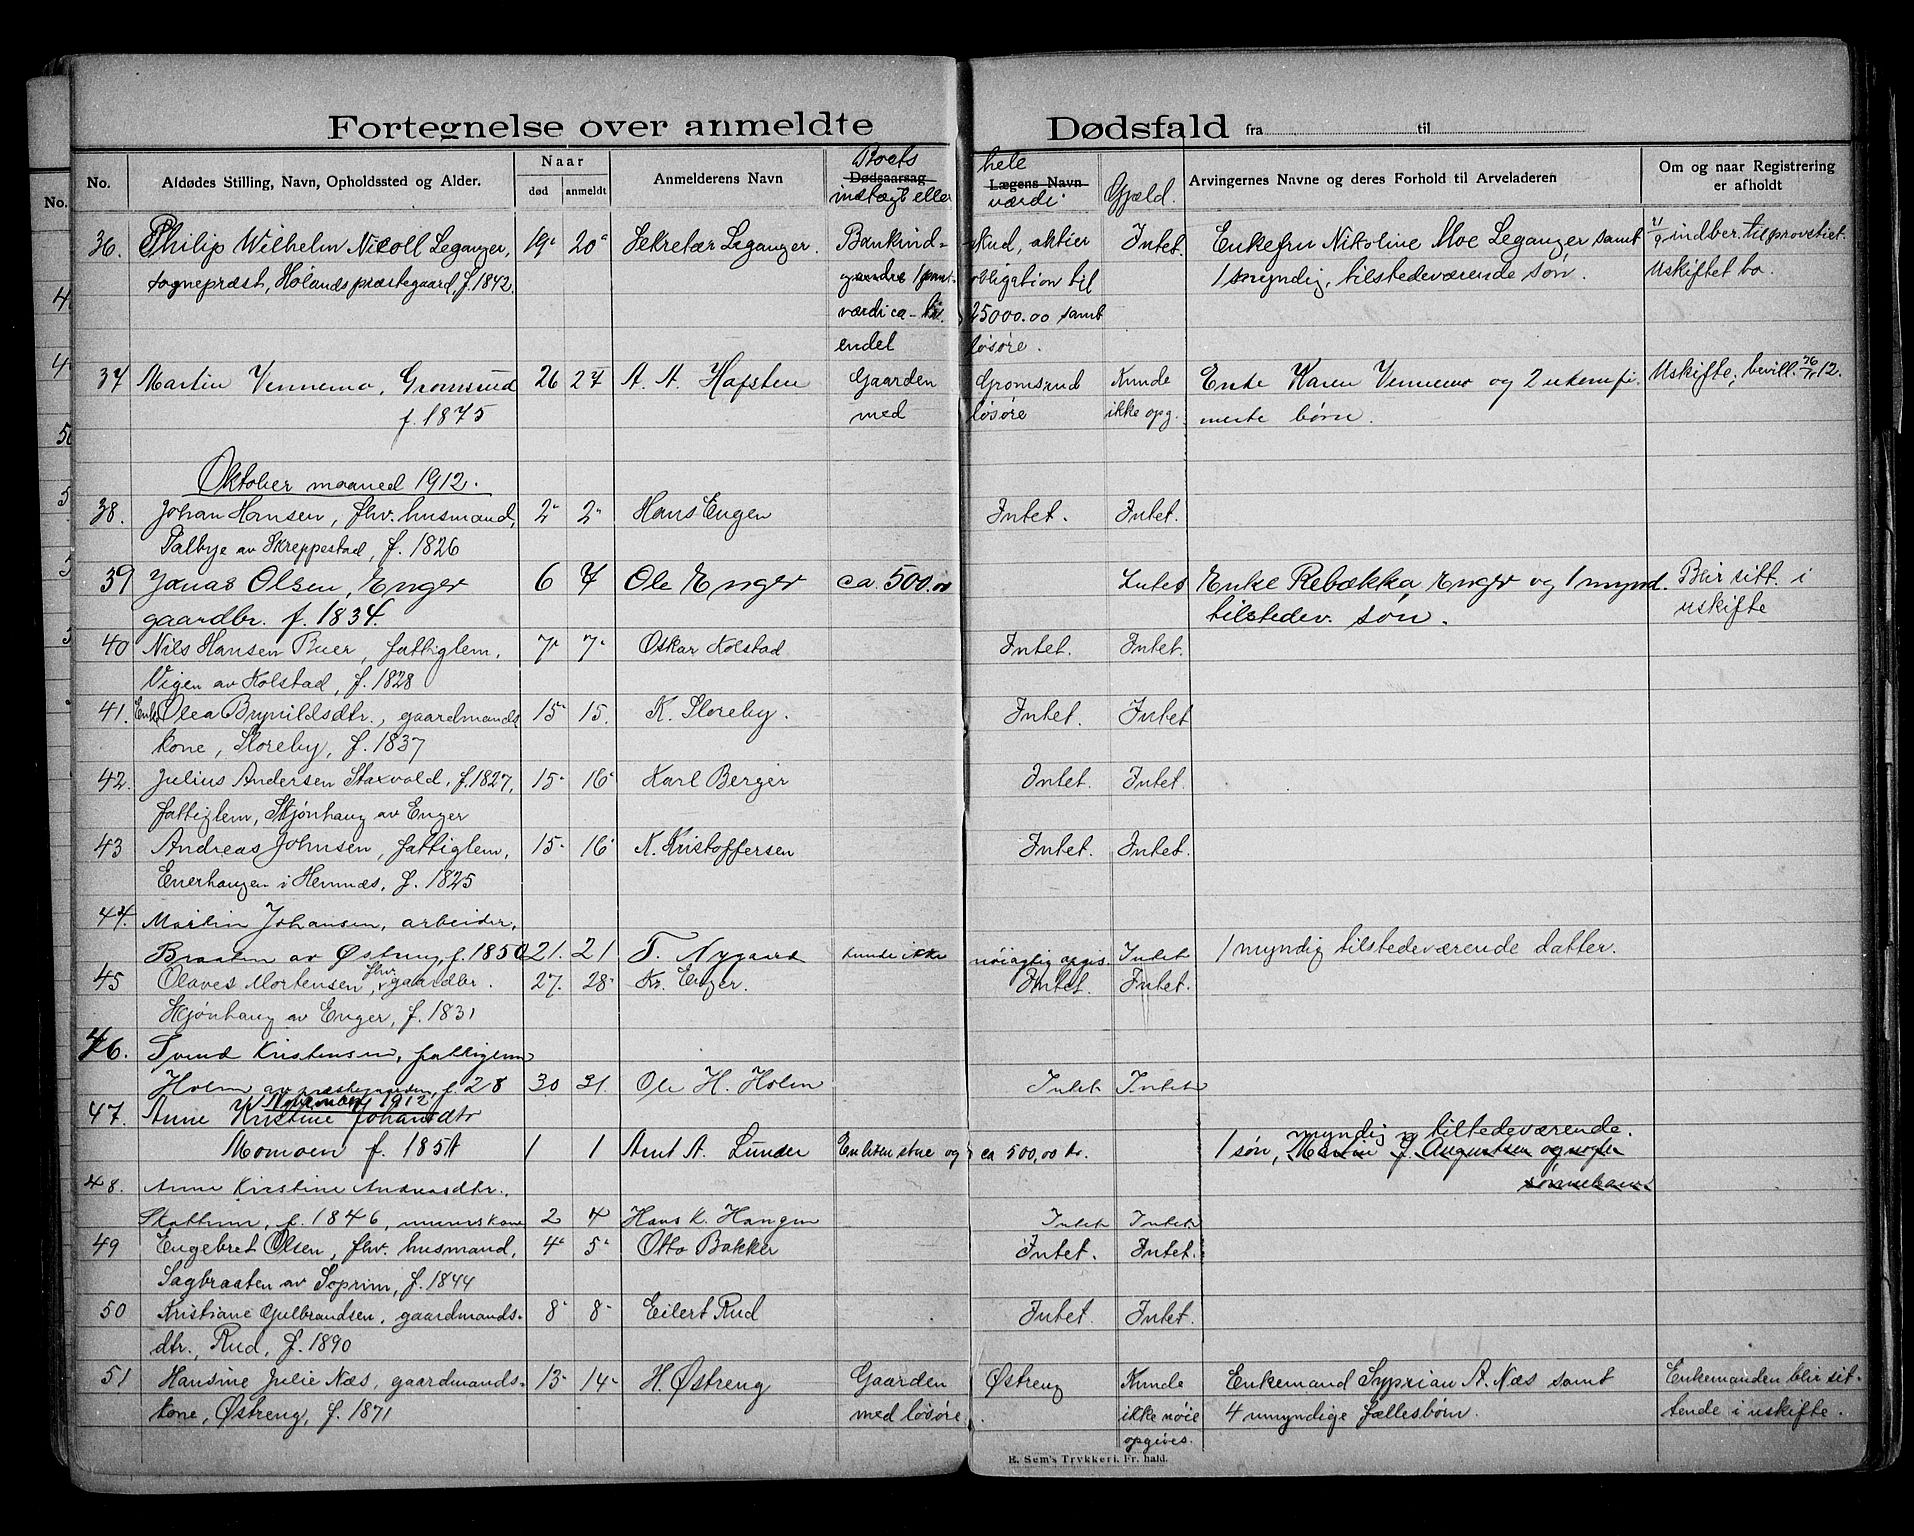 Fortegnelse over anmeldte Dødsfald fra til
No. Afdødes Stilling, Navn, Opholdssted og Alder. Naar død anmeldt Anmelderens Navn Dødsaarsag Boets indtægt eller Lægens Navn hele værdi Gjæld. Arvingernes Navne og deres Forhold til Arveladeren Om og naar Registrering er afholdt
36. Philip Wilhelm Nicoll Leganger, 19 20 Sekretær Leganger. Bankind- skud, aktier Intet. Enkefru Nikoline Moe Leganger samt 21/9 indber. til provstiet.
sognepræst, Hølands præstegaard, f. 1842. obligation til 1 myndig, tilstedeværende søn. Uskiftet bo.
værdi ca. kr. 25000.00 samt
endel løsøre.
37 Martin Vennemo, Gromsrud 26 27 A. A. Hafsten Gaarden Gromsrud Kunde Enke Karen Vennemo og 2 ukonfir- Uskifte, bevill. 12.
f. 1875 med løsøre ikke opg. merte børn.
Oktober maaned 1912.
38. Johan Hansen, fhv. husmand, 2 2 Hans Engen Intet. Intet.
Palbye av Skreppestad, f. 1826
39 Jonas Olsen, Enger 6 7 Ole Enger ca. 500.00 Intet Enke Rebækka Enger og 1 mynd. Beir sitt. i
gaardbr. f. 1834. tilstedev. søn. uskifte
40 Nils Hansen Buer, fattiglem, 7 7 Oskar Kolstad Intet. Intet.
Vigen av Kolstad, f. 1828
41. Enke Olea Brynildsdtr., gaardmands 15 15. K. Sloreby. Intet. Intet
kone, Sloreby, f. 1837
42. Julius Andersen Staxvold, f. 1827, 15 16 Karl Berger Intet. Intet.
fattiglem, Skjønhaug av Enger
43 Andreas Johnsen, fattiglem, 15 16 K. Kristoffersen Intet. Intet.
Enerhaugen i Hemnæs, f. 1825
44. Martin Johansen, arbeider,
Braaten av Østreng, f. 1850 21. 21 T. Nygaard kunde ikke nøiagtig opgis. Intet 1 myndig tilstedeværende datter.
45 Olaves Mortensen, fhv. gaardbr. 27. 28 Kr. Enger. Intet. Intet.
Skjønhaug av Enger, f. 1831
46. Svend Kristensen, fattiglem
Holm av præstegaarden f. 28 30. 31. Ole H. Holm Intet Intet
November 1912
47. Anne Kristine Johansdtr myndig tilstedeværende.
Momoen f. 1854 1 1 Arnt A. Lunder En liten stue og ca 500,00 kr. 1 søn, Martin J. Augustsen og
48. Anne Kirstine Andreasdtr.,
Skattum, f. 1846, 2 4 Hans K. Haugen Intet Intet
49 Engebret Olsen, fhv. husmand, 4 5 Otto Bakker Intet. Intet.
Sagbraaten av Soprim, f. 1844
50 Kristiane Gulbrandsen, gaardmands- 8 8 Eilert Rud Intet. Intet.
dtr., Rud, f. 1890
51 Hansine Julie Næs, gaardmands- 13 14 H. Østreng Gaarden Østreng Kunde Enkemand Syprian A. Næs samt Enkemanden blir sit-
kone, Østreng, f. 1871 med løsøre. ikke nøie 4 umyndige fællesbørn. tende i uskifte.
opgives.
E. Sem's Trykkeri. Fr. hald.